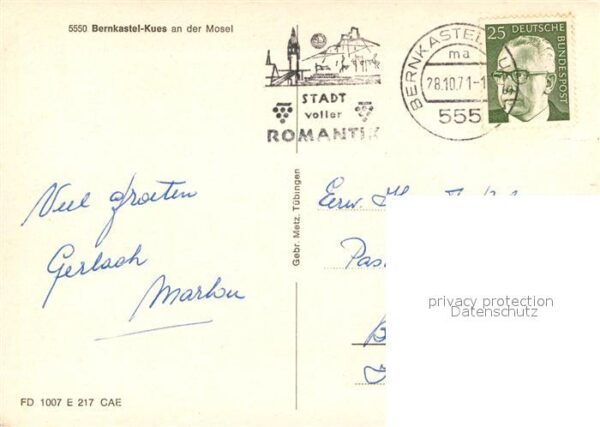 5550 Bernkastel-Kues an der Mosel
STADT
voller
ROMANTIK
BERNKASTEL-KUES
ma
28.10.71-1
555
25 DEUTSCHE BUNDESPOST
Veel groeten
Gerlach
Marlou
Gebr. Metz, Tübingen
Eerw. H
Pas
privacy protection
Datenschutz
FD 1007 E 217 CAE